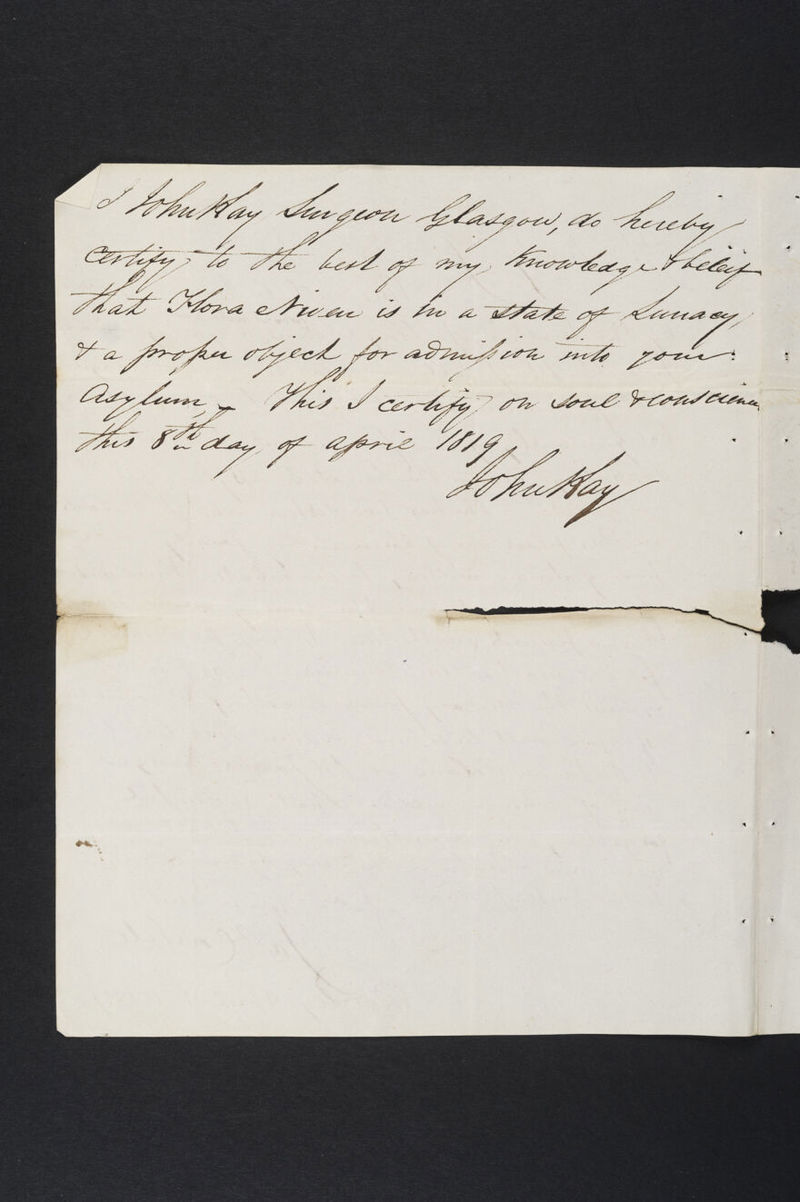 I John Kay Surgeon Glasgow, do hereby
certify, to the best of my knowledge & beleif
that Flora Niven is in a state of Lunacy,
& a proper object for admission into your
Asylum, – This I certify on soul & conscience
this 8th day of april 1819
John Kay